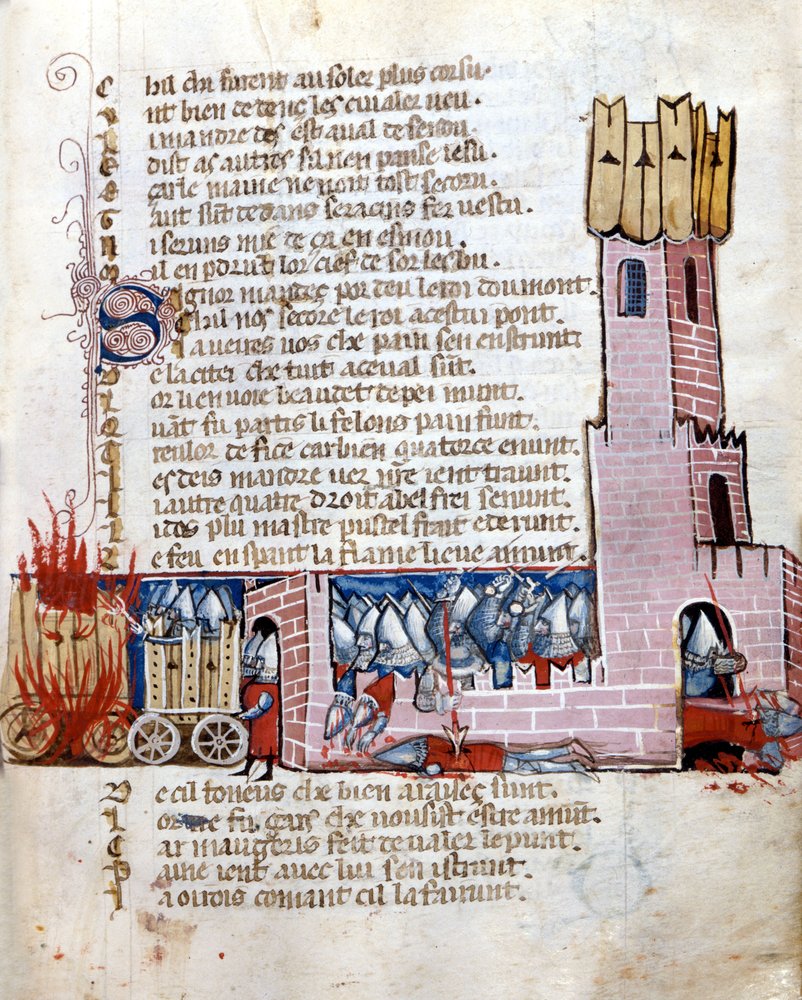 C hil chi furent au soler plus corsu.
nt bien dedenç les civaler veu.
i mandre des est aual desendu.
dist as autres si nen panse iesu.
çarle maine ne nont tost secoru.
aut sunt dedans seracins fer vestu.
i seruns mie de ça en esmou.
il en pdrunt lor cief desor le bu.
S eignor mandés por deu le roi do mont.
hil nos secore le roi a cestui pont.
la veires vos che pain sen enstrunt
e la citei che tuit a ceval sunt.
or li en voie beaudet de pei munt.
vant fu partis li felons pain funt.
renlor de fice car bien quatorce en unt.
es deis mandre ver nre ient traunt.
i autre quatre droit abel frei serunt.
i dos plu mastre pustel frait eterunt.
e feu en spant la flame lieue amunt.
D e cil toneus che bien araieç sunt.
L or ne fu gars che vousist estre amunt.
C ar maugeris feit devaler le punt.
P aine ient avec lui sen istrunt.
I a oidis comant cil la fairunt.